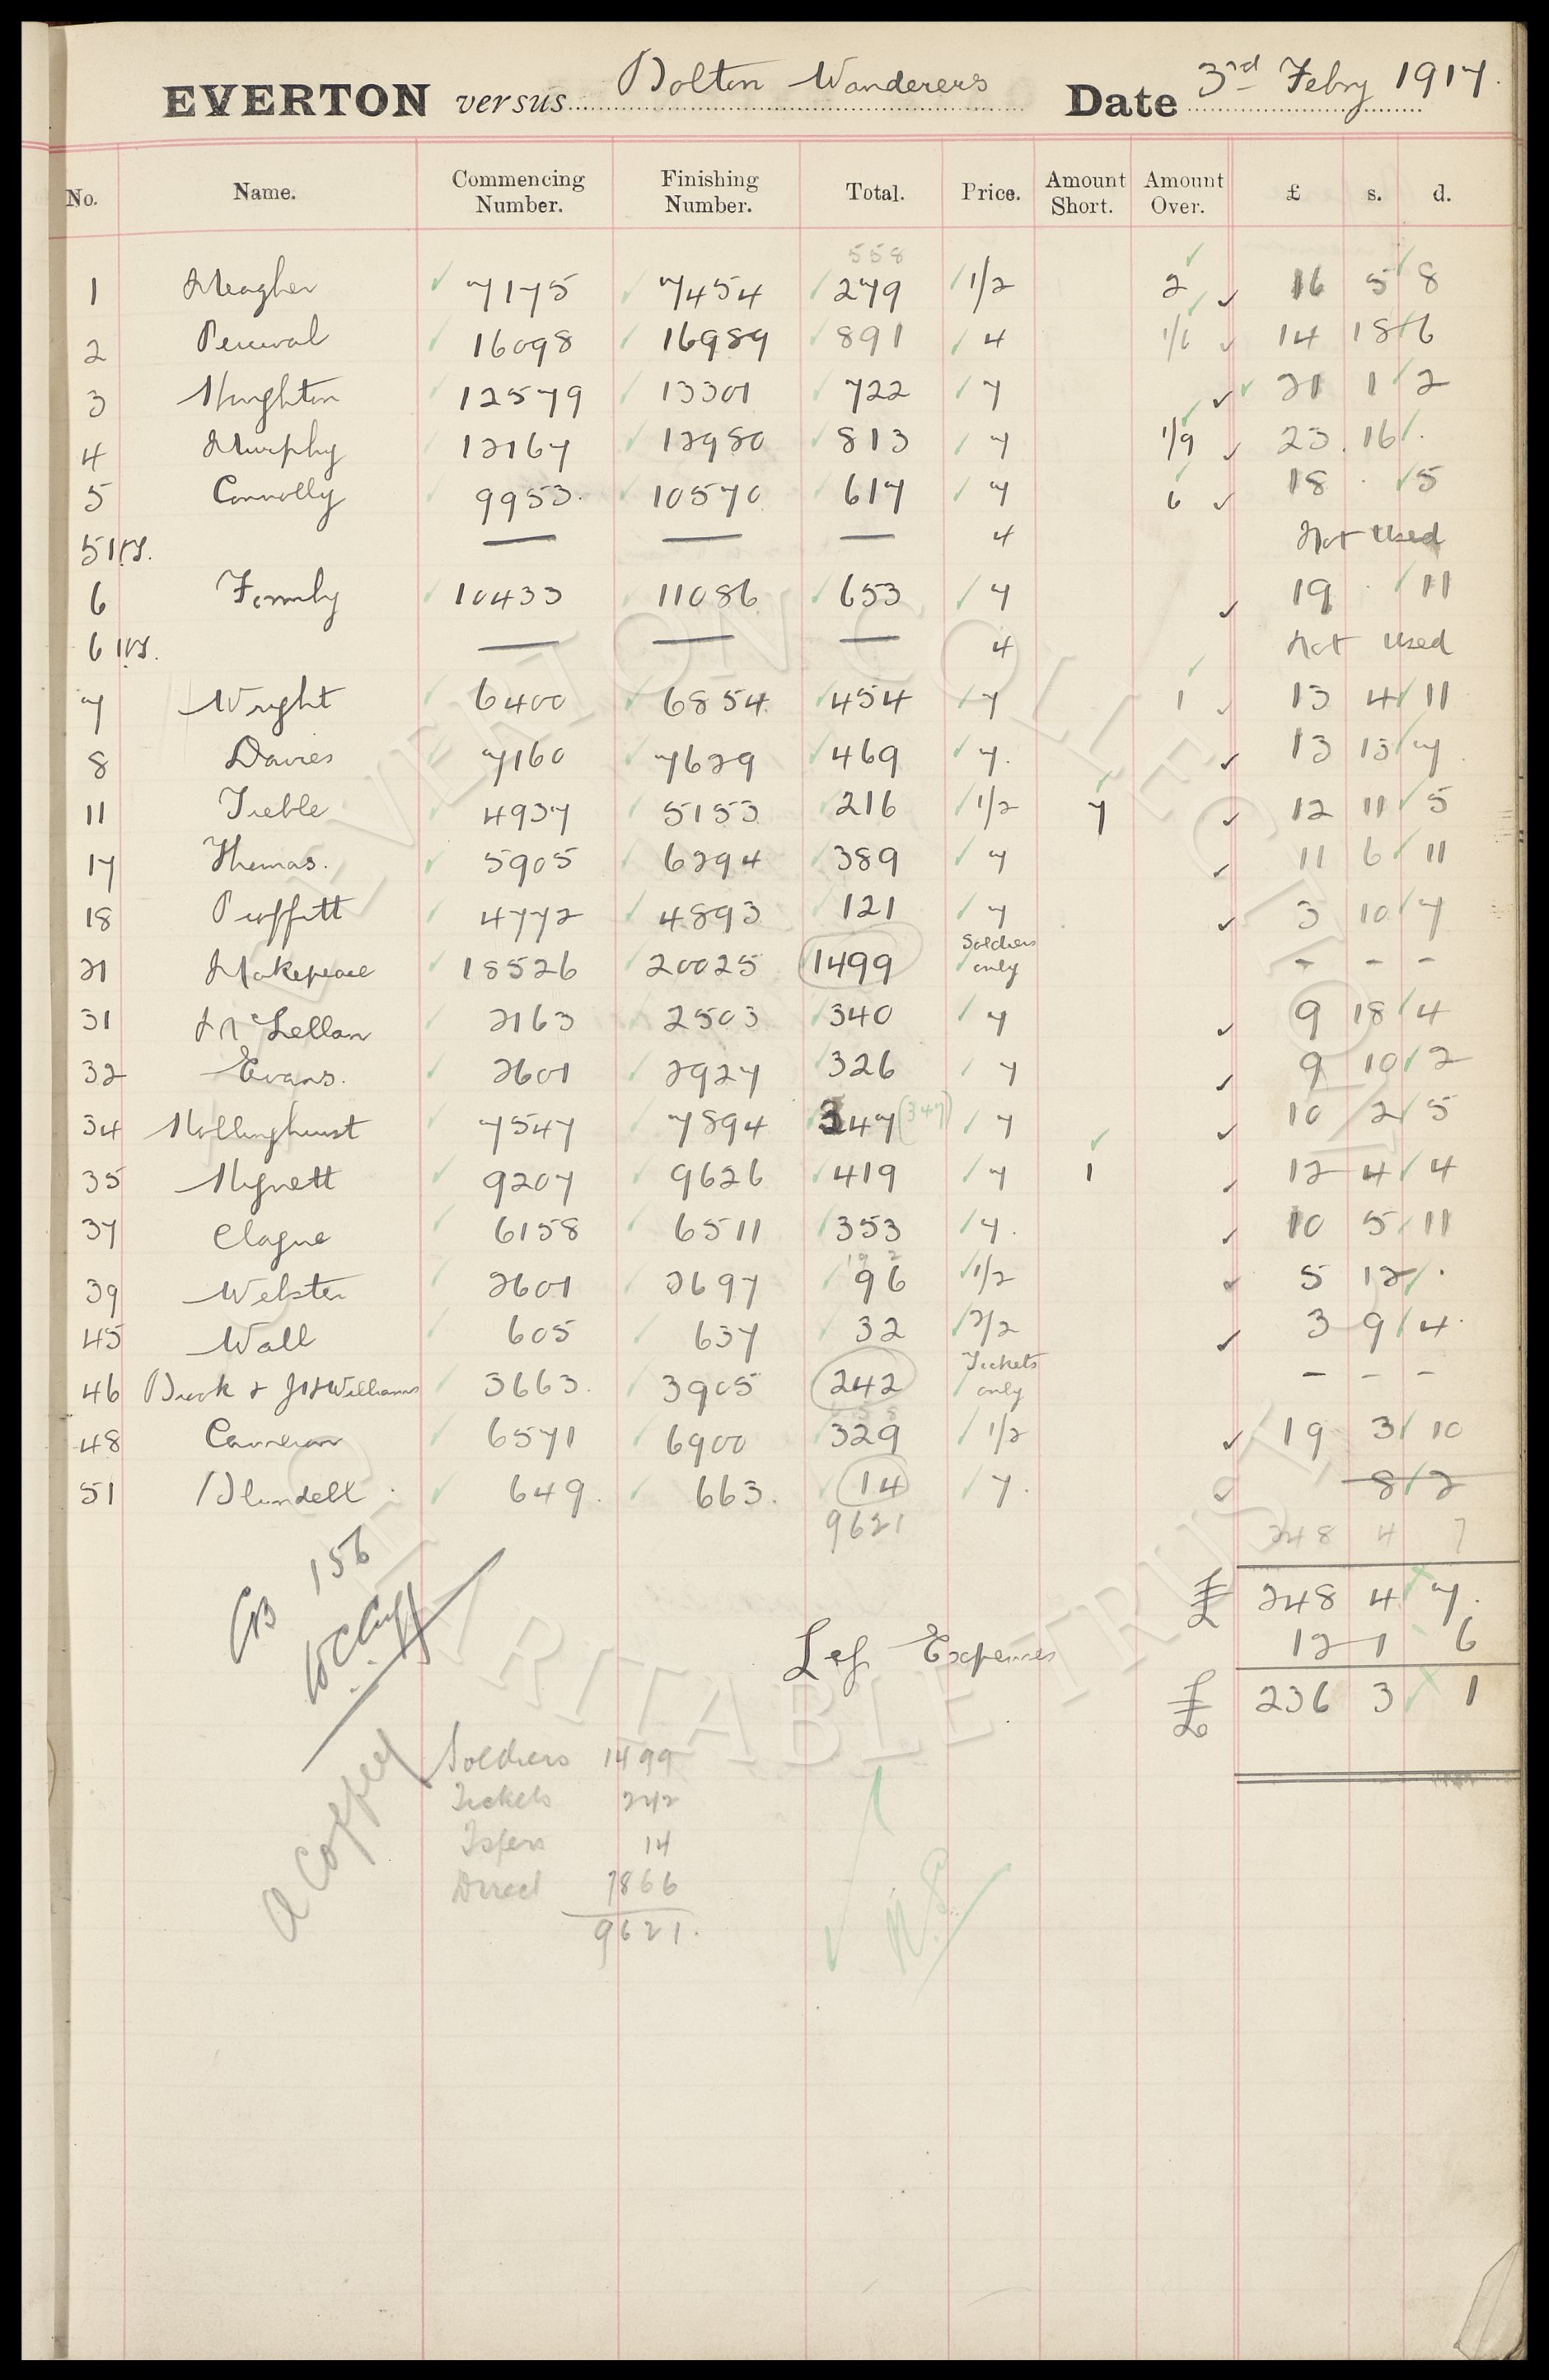 EVERTON versus Bolton Wanderers Date 3rd Febry 1917.
No. Name. Commencing Number. Finishing Number. Total. Price. Amount Short. Amount Over. £ s. d.
558
1 Meagher 7175 7454 279 1/2 2 16 5 8
2 Percival 16098 16989 891 4 1/6 14 18 6
3 Houghton 12579 13301 722 7 21 1 2
4 Murphy 12167 12980 813 7 1/9 23 16 .
5 Connolly 9953. 10570 617 7 6 18 . 5
5 Bys. — — — 4 Not Used
6 Formby 10433 11086 653 7 19 . 11
6 Bys. — — — 4 Not Used
7 Wright 6400 6854 454 7 1 13 4 11
8 Davies 7160 7629 469 7. 13 13 7
11 Treble 4937 5153 216 1/2 7 12 11 5
17 Thomas. 5905 6294 389 7 11 6 11
18 Proffitt 4772 4893 121 7 3 10 7
21 Makepeace 18526 20025 1499 Soldiers only - - -
31 McLellan 2163 2503 340 7 9 18 4
32 Evans. 2601 2927 326 7 9 10 2
34 Hollinghurst 7547 7894 347 (347) 7 10 2 5
35 Hignett 9207 9626 419 7 1 12 4 4
37 Clague 6158 6511 353 7. 10 5 11
192
39 Webster 2601 2697 96 1/2 5 12 .
45 Wall 605 637 32 2/2 3 9 4.
46 Brook & JH Williams 3663. 3905 242 Tickets only - - -
658
48 Cameron 6571 6900 329 1/2 19 3 10
51 Blundell 649. 663. 14 7. 8 2
9621 248 4 7
CB 156
£ 248 4 7.
WC Cuff
Les Expenses 12 1 6
£ 236 3 1
A Coffey
Soldiers 1499
Tickets 242
Tsfers 14
Direct 7866
9621.
EVERTON COLLECTION CHARITABLE TRUST